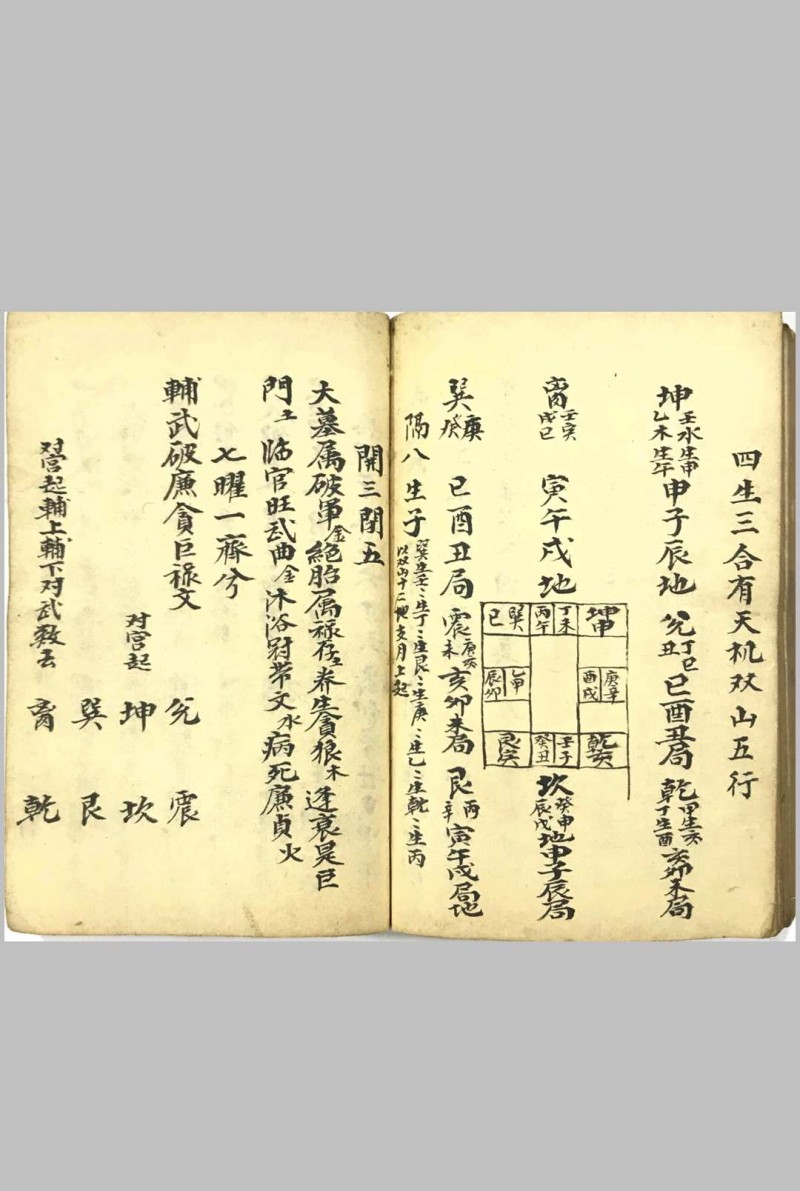 四生三合有天机双山五行
坤壬水生申乙木生午申子辰地 兑丁巳丑巳酉丑局 乾甲生亥丁生酉亥卯未局
离壬寅戌巳寅午戌地
坤申
丁未
丙午
巽
巳
庚辛
酉戌
乙甲
辰卯
乾亥
壬子
癸丑
艮寅
坎癸申辰戌地申子辰局
巽庚癸巳酉丑局 震庚亥未亥卯未局 艮丙辛寅午戌局地
隔八生子
以双山十二地支月上起
開三閉五
大墓属破軍金絕胎属禄存土养生貪狼木逢衰是巨
門土临官旺武曲金沐浴冠带文水病死廉貞火
七曜一齊兮
輔武破廉貪巨禄文
对宫起
兑 震
坤 坎
巽 艮
离 乾
对宫起輔上輔下对武数去